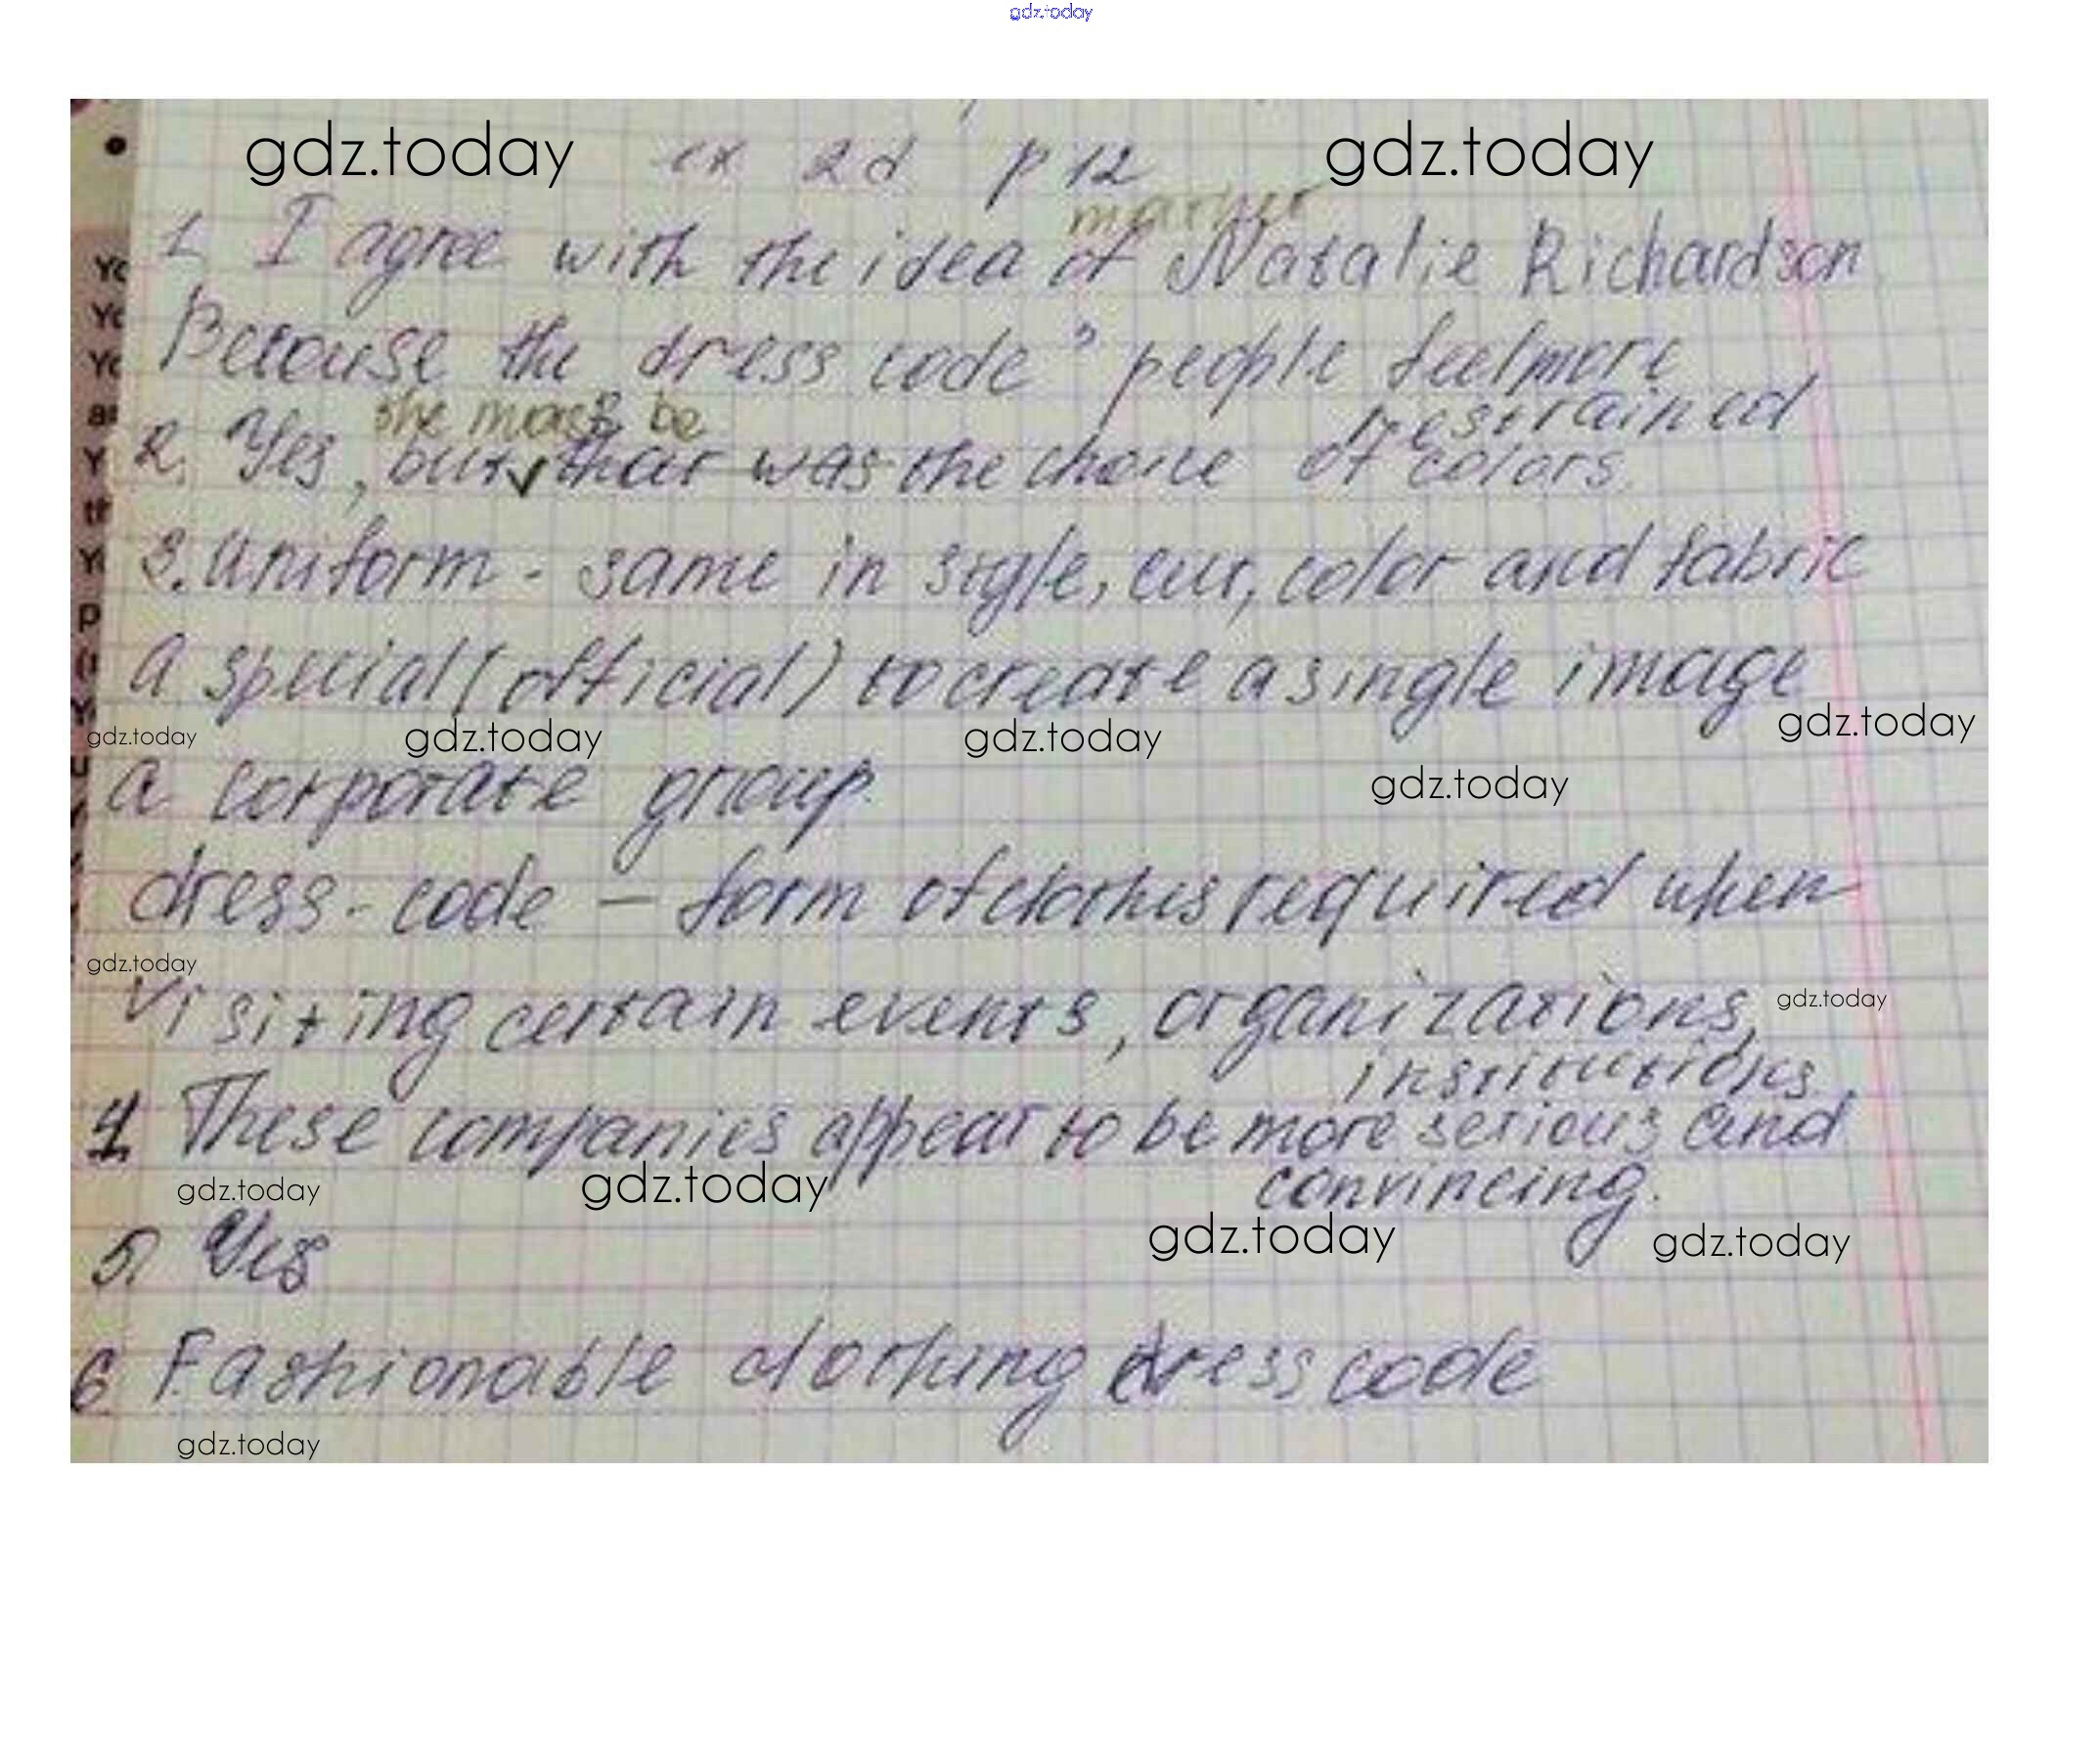 gdz.today
gdz.today ex 2d p 12 gdz.today
1. I agree with the idea of Natalie Richardson
Because the dress code people feel more
restrained
she must be
2. Yes, but that was the choice of colors.
3. Uniform - same in style, cut, color and fabric
a special (official) to create a single image
gdz.today gdz.today gdz.today gdz.today
a corporate group. gdz.today
dress-code — form of clothes required when
gdz.today
visiting certain events, organizations, gdz.today
institutions
4. These companies appear to be more serious and
gdz.today gdz.today convincing.
gdz.today gdz.today
5. Yes
6 Fashionable clothing dress code
gdz.today